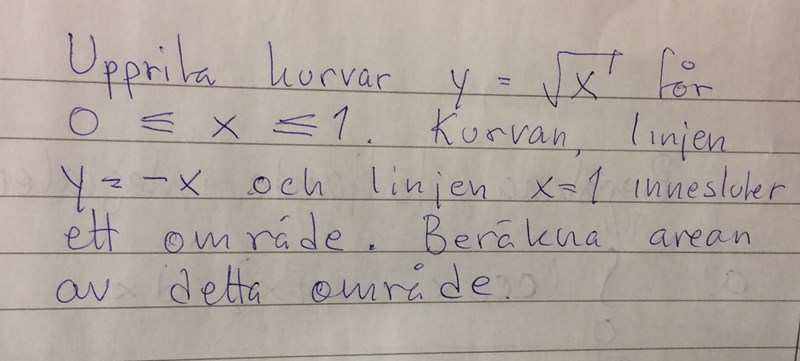 Upprita kurvar y = √x för
0 ≤ x ≤ 1. Kurvan, linjen
y = -x och linjen x=1 innesluter
ett område. Beräkna arean
av detta område.